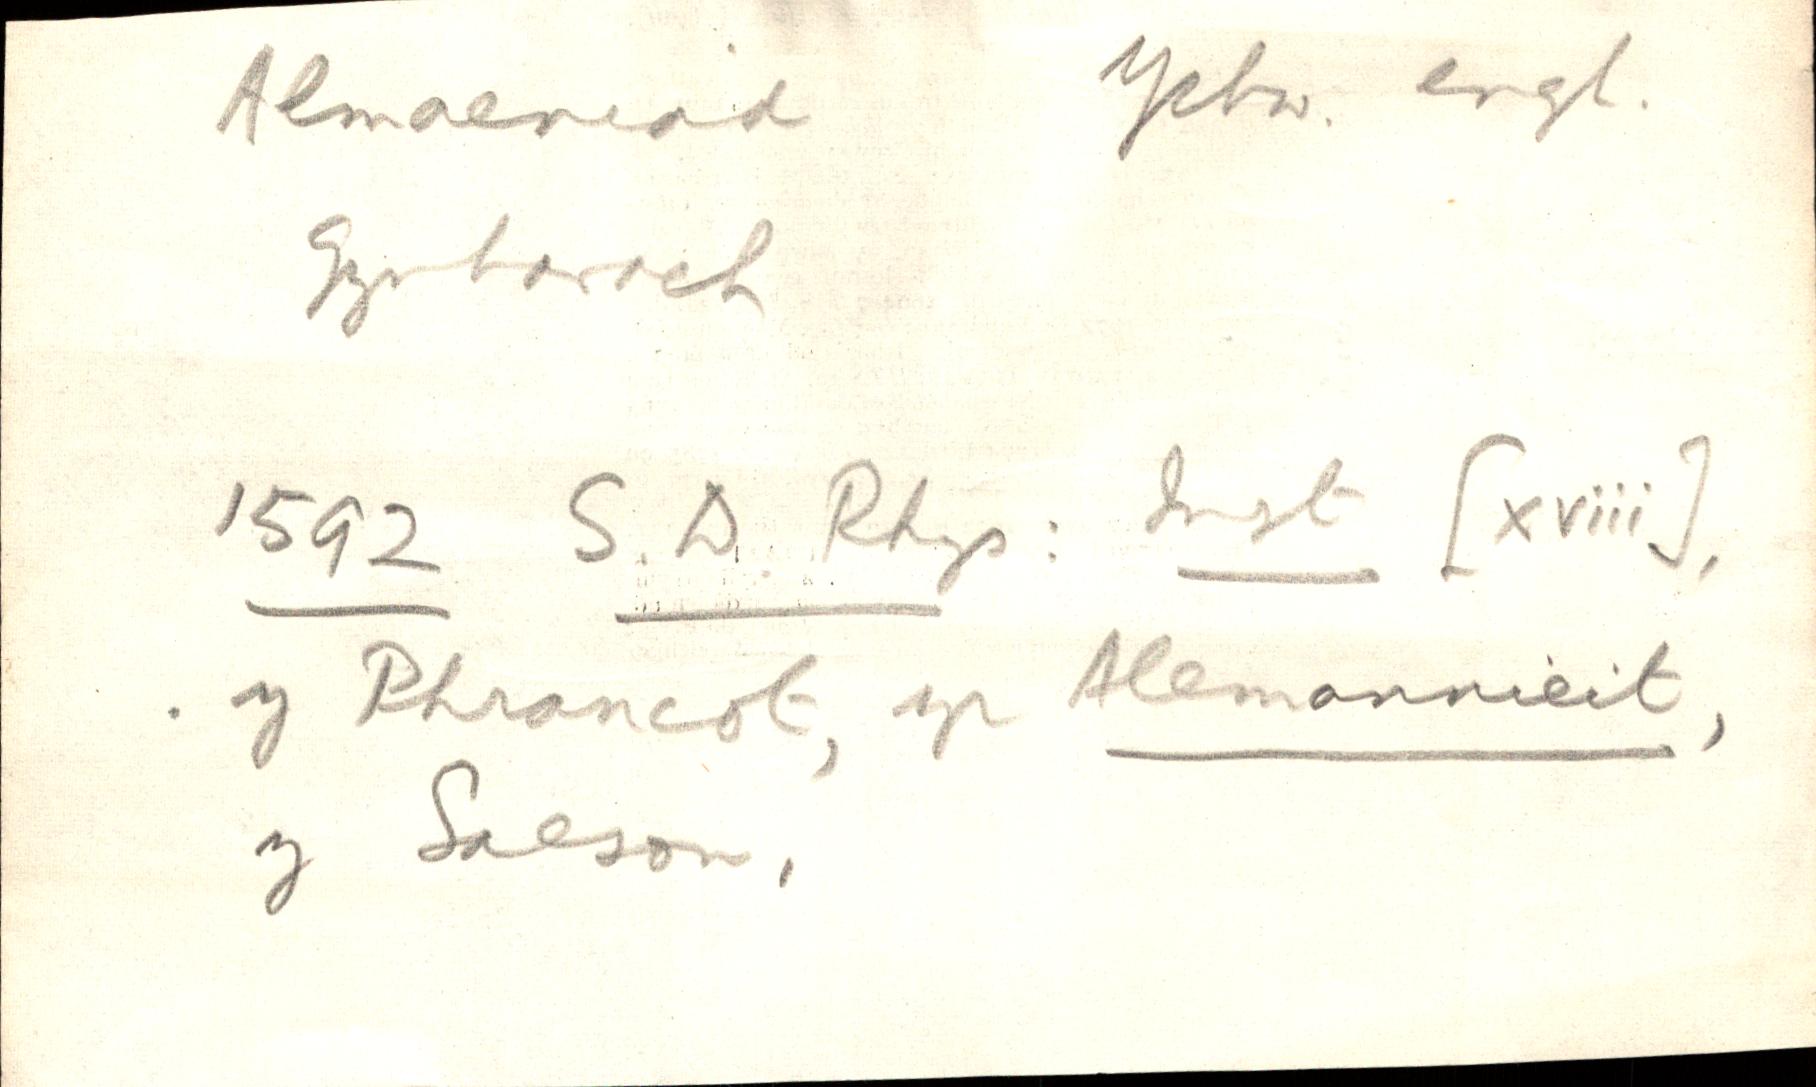 Almaeniad Ychw. engl.
Gynharach
1592 S. D. Rhys: Inst [xviii],
y Phrancot, yr Alemannieit,
y Saeson,